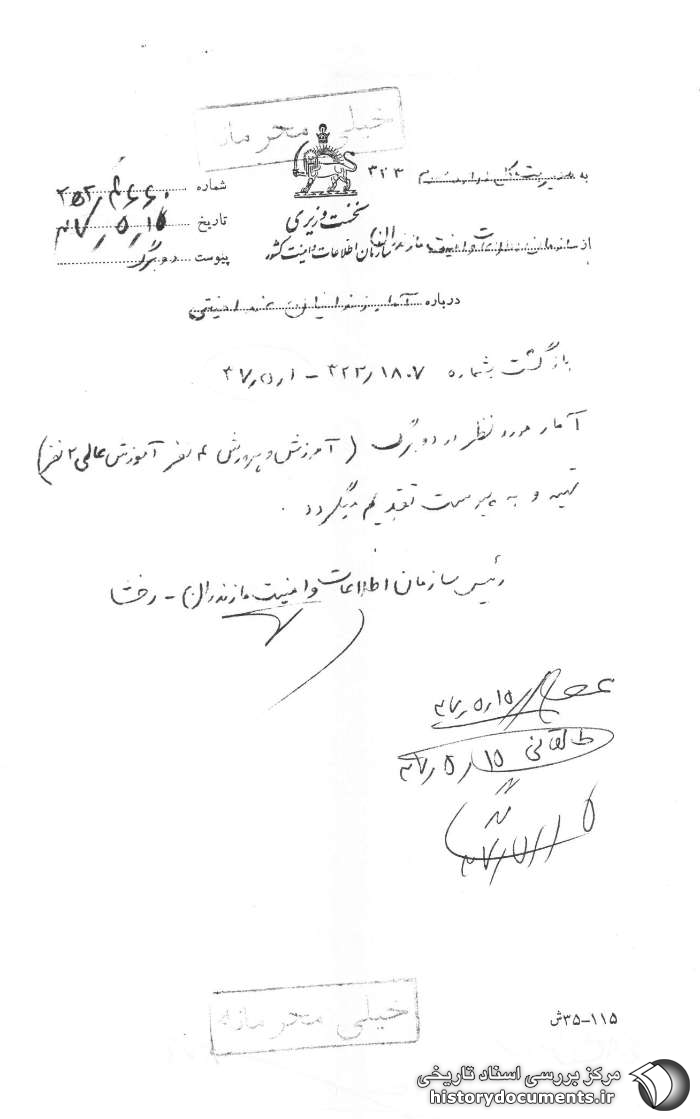 خیلی محرمانه
به مدیریت کل اداره سوم ۳۲۳
شماره
نخست وزیری
تاریخ ۴۷/۵/۱۵
از سازمان اطلاعات و امنیت مازندران
سازمان اطلاعات و امنیت کشور
پیوست دو برگ
درباره
بازگشت بشماره ۳۲۳/۱۸۰۷ -
آمار مورد نظر در دو برگ (آموزش و پرورش ۴ نفر آموزش عالی ۲ نفر)
تهیه و به پیوست تقدیم میگردد .
رئیس سازمان اطلاعات و امنیت مازندران - رخشا
۴۷/۵/۱۵
طالقانی ۴۷/۵/۱۵
خیلی محرمانه
۱۱۵-۳۵ش
مرکز بررسی اسناد تاریخی
historydocuments.ir